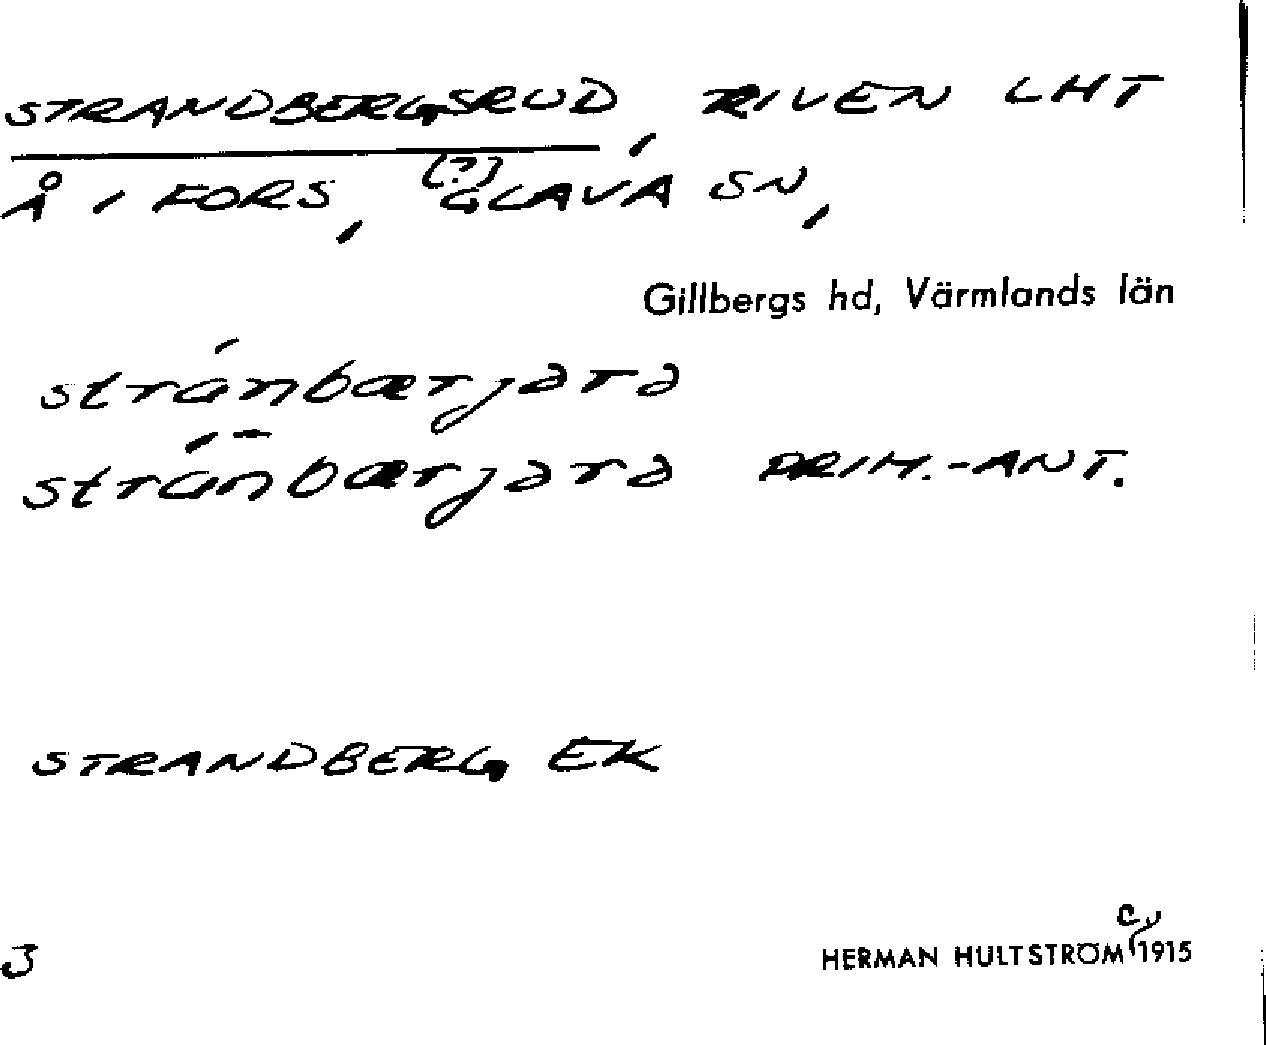 STRANDBERGSRUD, RIVEN LHT
Å I FORS, (?) GLAVA SN,
Gillbergs hd, Värmlands län
stránbærjərə
stránbærjərə PRIM.-ANT.
STRANDBERG EK
3 HERMAN HULTSTRÖM c 1915